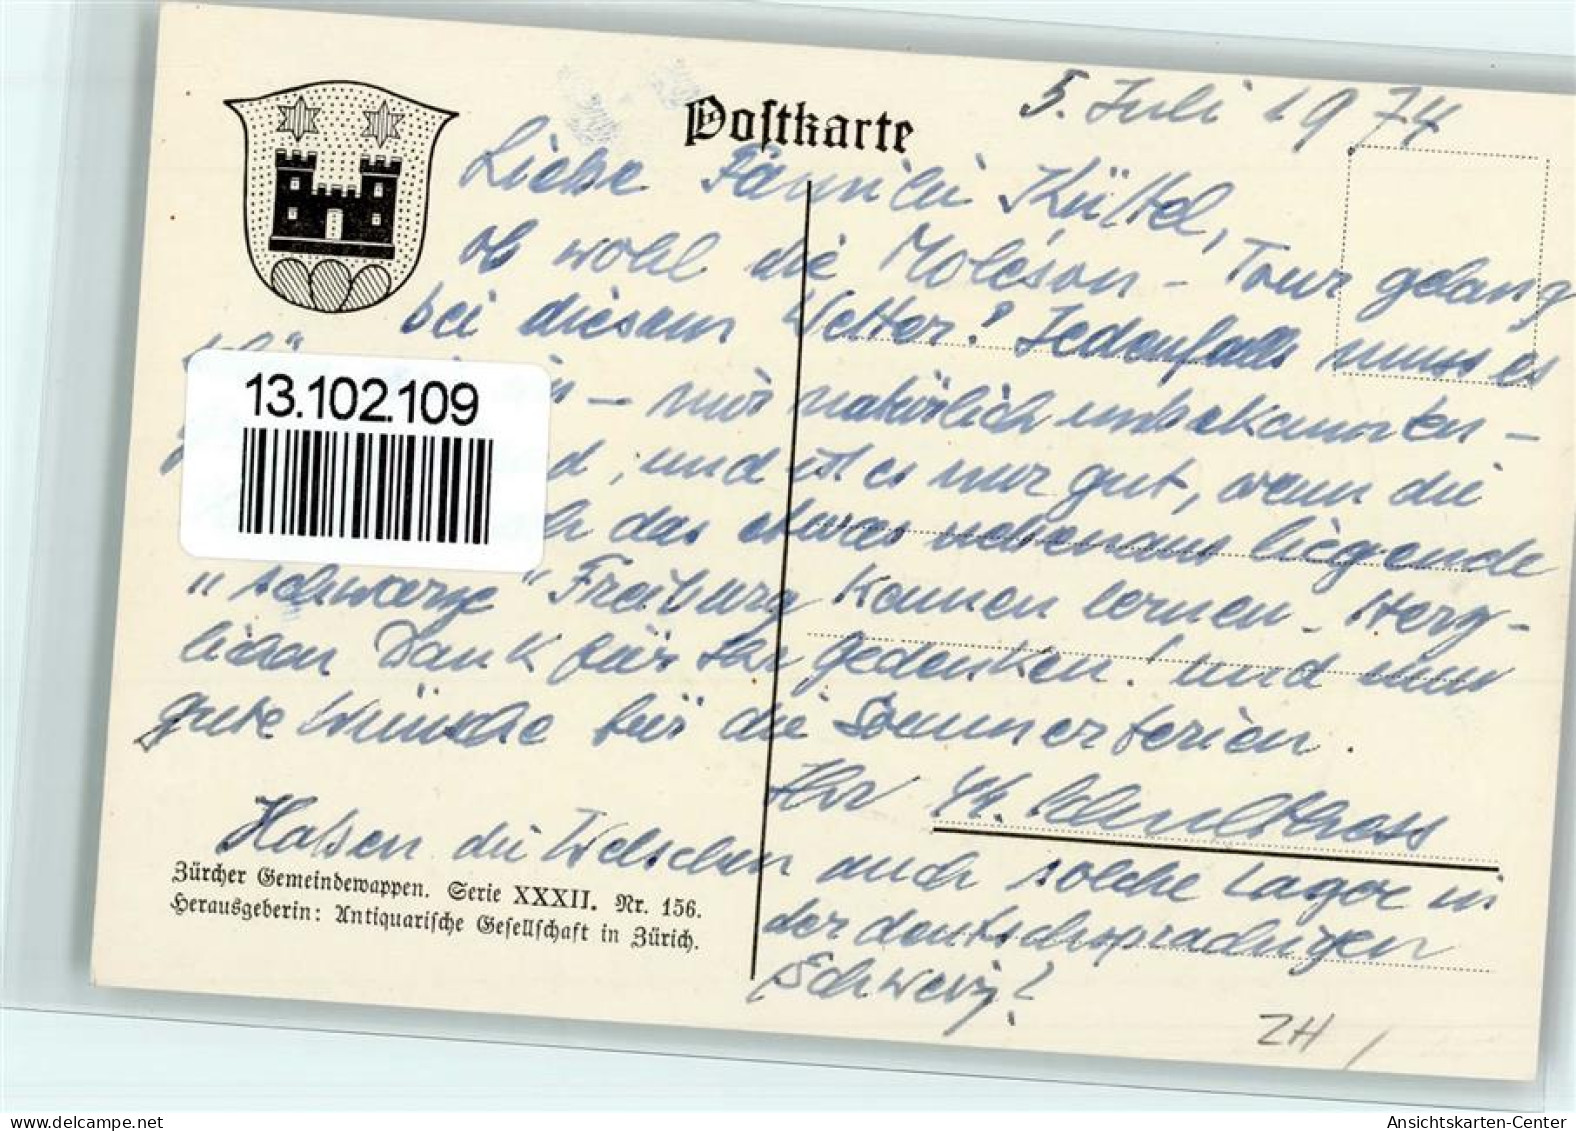 Postkarte
5. Juli 1974
Liebe Familie Küttel,
ob wohl die Moléson-Tour gelang
bei diesem Wetter? Jedenfalls muss es
– mir natürlich unbekannten –
und ist es nur gut, wenn die
das etwas nebenaus liegende
"schwarze" Freiburg kennen lernen. Herz-
lichen Dank für Ihr Gedenken! und nun
gute Wünsche für die Sommerferien.
Ihr Schulthess
Haben die Welschen auch solche Lager in
der deutschsprachigen
Schweiz?
Zürcher Gemeindewappen. Serie XXXII. Nr. 156.
Herausgeberin: Antiquarische Gesellschaft in Zürich.
13.102.109
ZH /
Ansichtskarten-Center